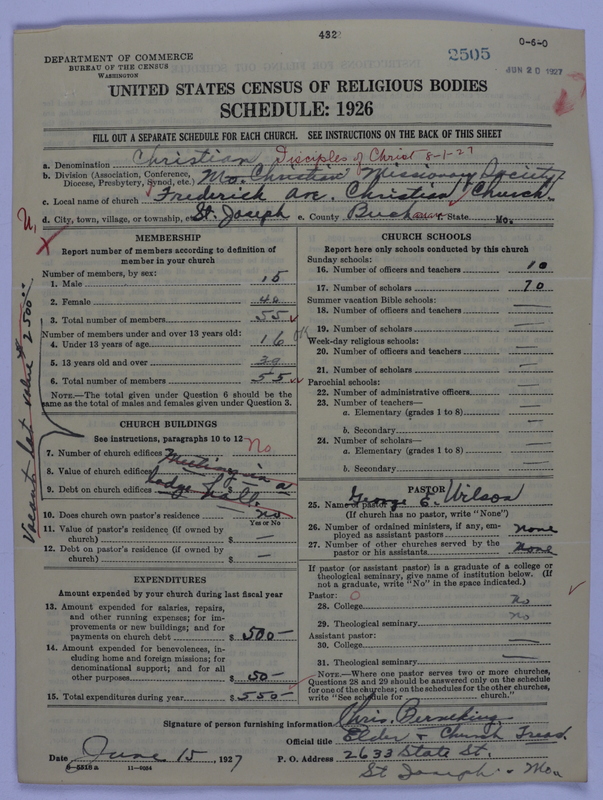 432
0-6-0
DEPARTMENT OF COMMERCE
BUREAU OF THE CENSUS
WASHINGTON
2505
JUN 20 1927
UNITED STATES CENSUS OF RELIGIOUS BODIES
SCHEDULE: 1926
FILL OUT A SEPARATE SCHEDULE FOR EACH CHURCH. SEE INSTRUCTIONS ON THE BACK OF THIS SHEET
a. Denomination Christian Disciples of Christ 8-1-27
b. Division (Association, Conference, Diocese, Presbytery, Synod, etc.) Mo. Christian Missionary Society
c. Local name of church Frederick Ave. Christian Church
d. City, town, village, or township, St. Joseph e. County Buchanan f. State Mo.
MEMBERSHIP
Report number of members according to definition of
member in your church
Number of members, by sex:
1. Male 15
2. Female 40
3. Total number of members 55
Number of members under and over 13 years old:
4. Under 13 years of age 16
OK
5. 13 years old and over 39
6. Total number of members 55
NOTE.—The total given under Question 6 should be the
same as the total of males and females given under Question 3.
Vacant lot value $2500.00
CHURCH BUILDINGS
See instructions, paragraphs 10 to 12
7. Number of church edifices No
8. Value of church edifices Meeting in a
9. Debt on church edifices lodge hall
10. Does church own pastor's residence? no
Yes or No
11. Value of pastor's residence (if owned by
church) $ —
12. Debt on pastor's residence (if owned by
church) $ —
EXPENDITURES
Amount expended by your church during last fiscal year
13. Amount expended for salaries, repairs,
and other running expenses; for im-
provements or new buildings; and for
payments on church debt $ 500—
14. Amount expended for benevolences, in-
cluding home and foreign missions; for
denominational support; and for all
other purposes $ 50—
15. Total expenditures during year $ 550—
CHURCH SCHOOLS
Report here only schools conducted by this church
Sunday schools:
16. Number of officers and teachers 10
17. Number of scholars 70
Summer vacation Bible schools:
18. Number of officers and teachers —
19. Number of scholars —
Week-day religious schools:
20. Number of officers and teachers —
21. Number of scholars —
Parochial schools:
22. Number of administrative officers —
23. Number of teachers—
a. Elementary (grades 1 to 8) —
b. Secondary —
24. Number of scholars—
a. Elementary (grades 1 to 8) —
b. Secondary —
PASTOR
25. Name of pastor George E. Wilson
(If church has no pastor, write "None")
26. Number of ordained ministers, if any, em-
ployed as assistant pastors none
27. Number of other churches served by the
pastor or his assistants none
If pastor (or assistant pastor) is a graduate of a college or
theological seminary, give name of institution below. (If
not a graduate, write "No" in the space indicated.)
Pastor: 0
28. College No
29. Theological seminary no
Assistant pastor:
30. College —
31. Theological seminary —
NOTE.—Where one pastor serves two or more churches,
Questions 28 and 29 should be answered only on the schedule
for one of the churches; on the schedules for the other churches,
write "See schedule for church."
Signature of person furnishing information Chris. Berneking
Official title Elder & Church Treas.
Date June 15, 1927 P. O. Address 2633 State St.
8-5516a 11-9064
St Joseph - Mo